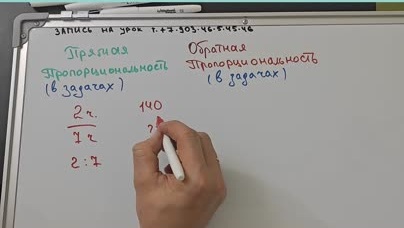 Запись на урок т.+7.903.46.5.45.46
Прямая
Пропорциональность
(в задачах)
Обратная
Пропорциональность
(в задачах)
2ч. 140
7ч ?
2:7